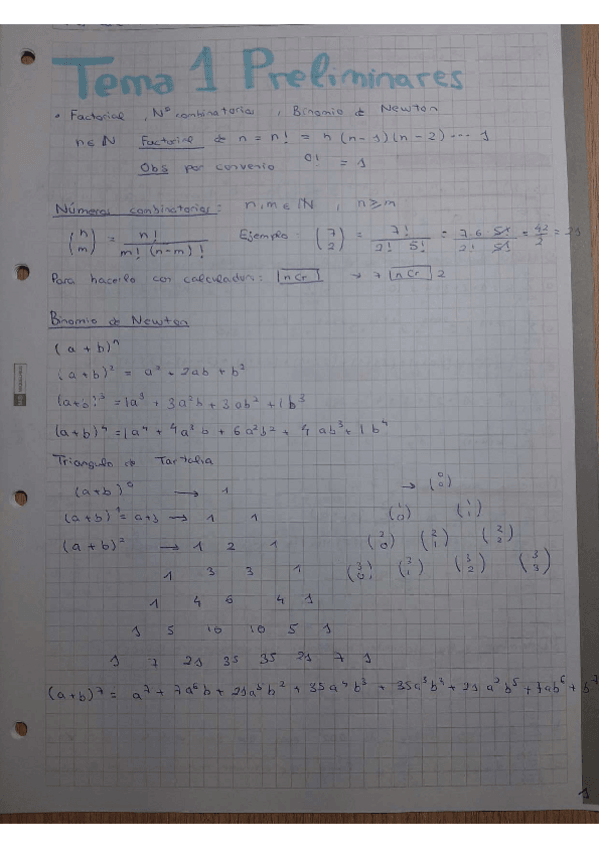 Tema 1 Preliminares
• Factorial, Nº combinatorios, Binomio de Newton
n ∈ ℕ Factorial de n = n! = n (n-1)(n-2) ... 1
Obs por convenio 0! = 1
Números combinatorios: n, m ∈ ℕ, n ≥ m
(n m) = n! / m! (n-m)! Ejemplo: (7 2) = 7! / 2! 5! = 7·6·5! / 2! 5! = 42/2 = 21
Para hacerlo con calculadora: nCr → 7 nCr 2
Binomio de Newton
(a + b)^n
(a + b)² = a² + 2ab + b²
(a+b)³ = 1a³ + 3a²b + 3ab² + 1b³
(a+b)⁴ = 1a⁴ + 4a³b + 6a²b² + 4ab³ + 1b⁴
Triangulo de Tartalia
(a+b)⁰ → 1 → (0 0)
(a+b)¹ = a+b → 1 1 (1 0) (1 1)
(a+b)² → 1 2 1 (2 0) (2 1) (2 2)
1 3 3 1 (3 0) (3 1) (3 2) (3 3)
1 4 6 4 1
1 5 10 10 5 1
1 7 21 35 35 21 7 1
(a+b)⁷ = a⁷ + 7a⁶b + 21a⁵b² + 35a⁴b³ + 35a³b⁴ + 21a²b⁵ + 7ab⁶ + b⁷
1